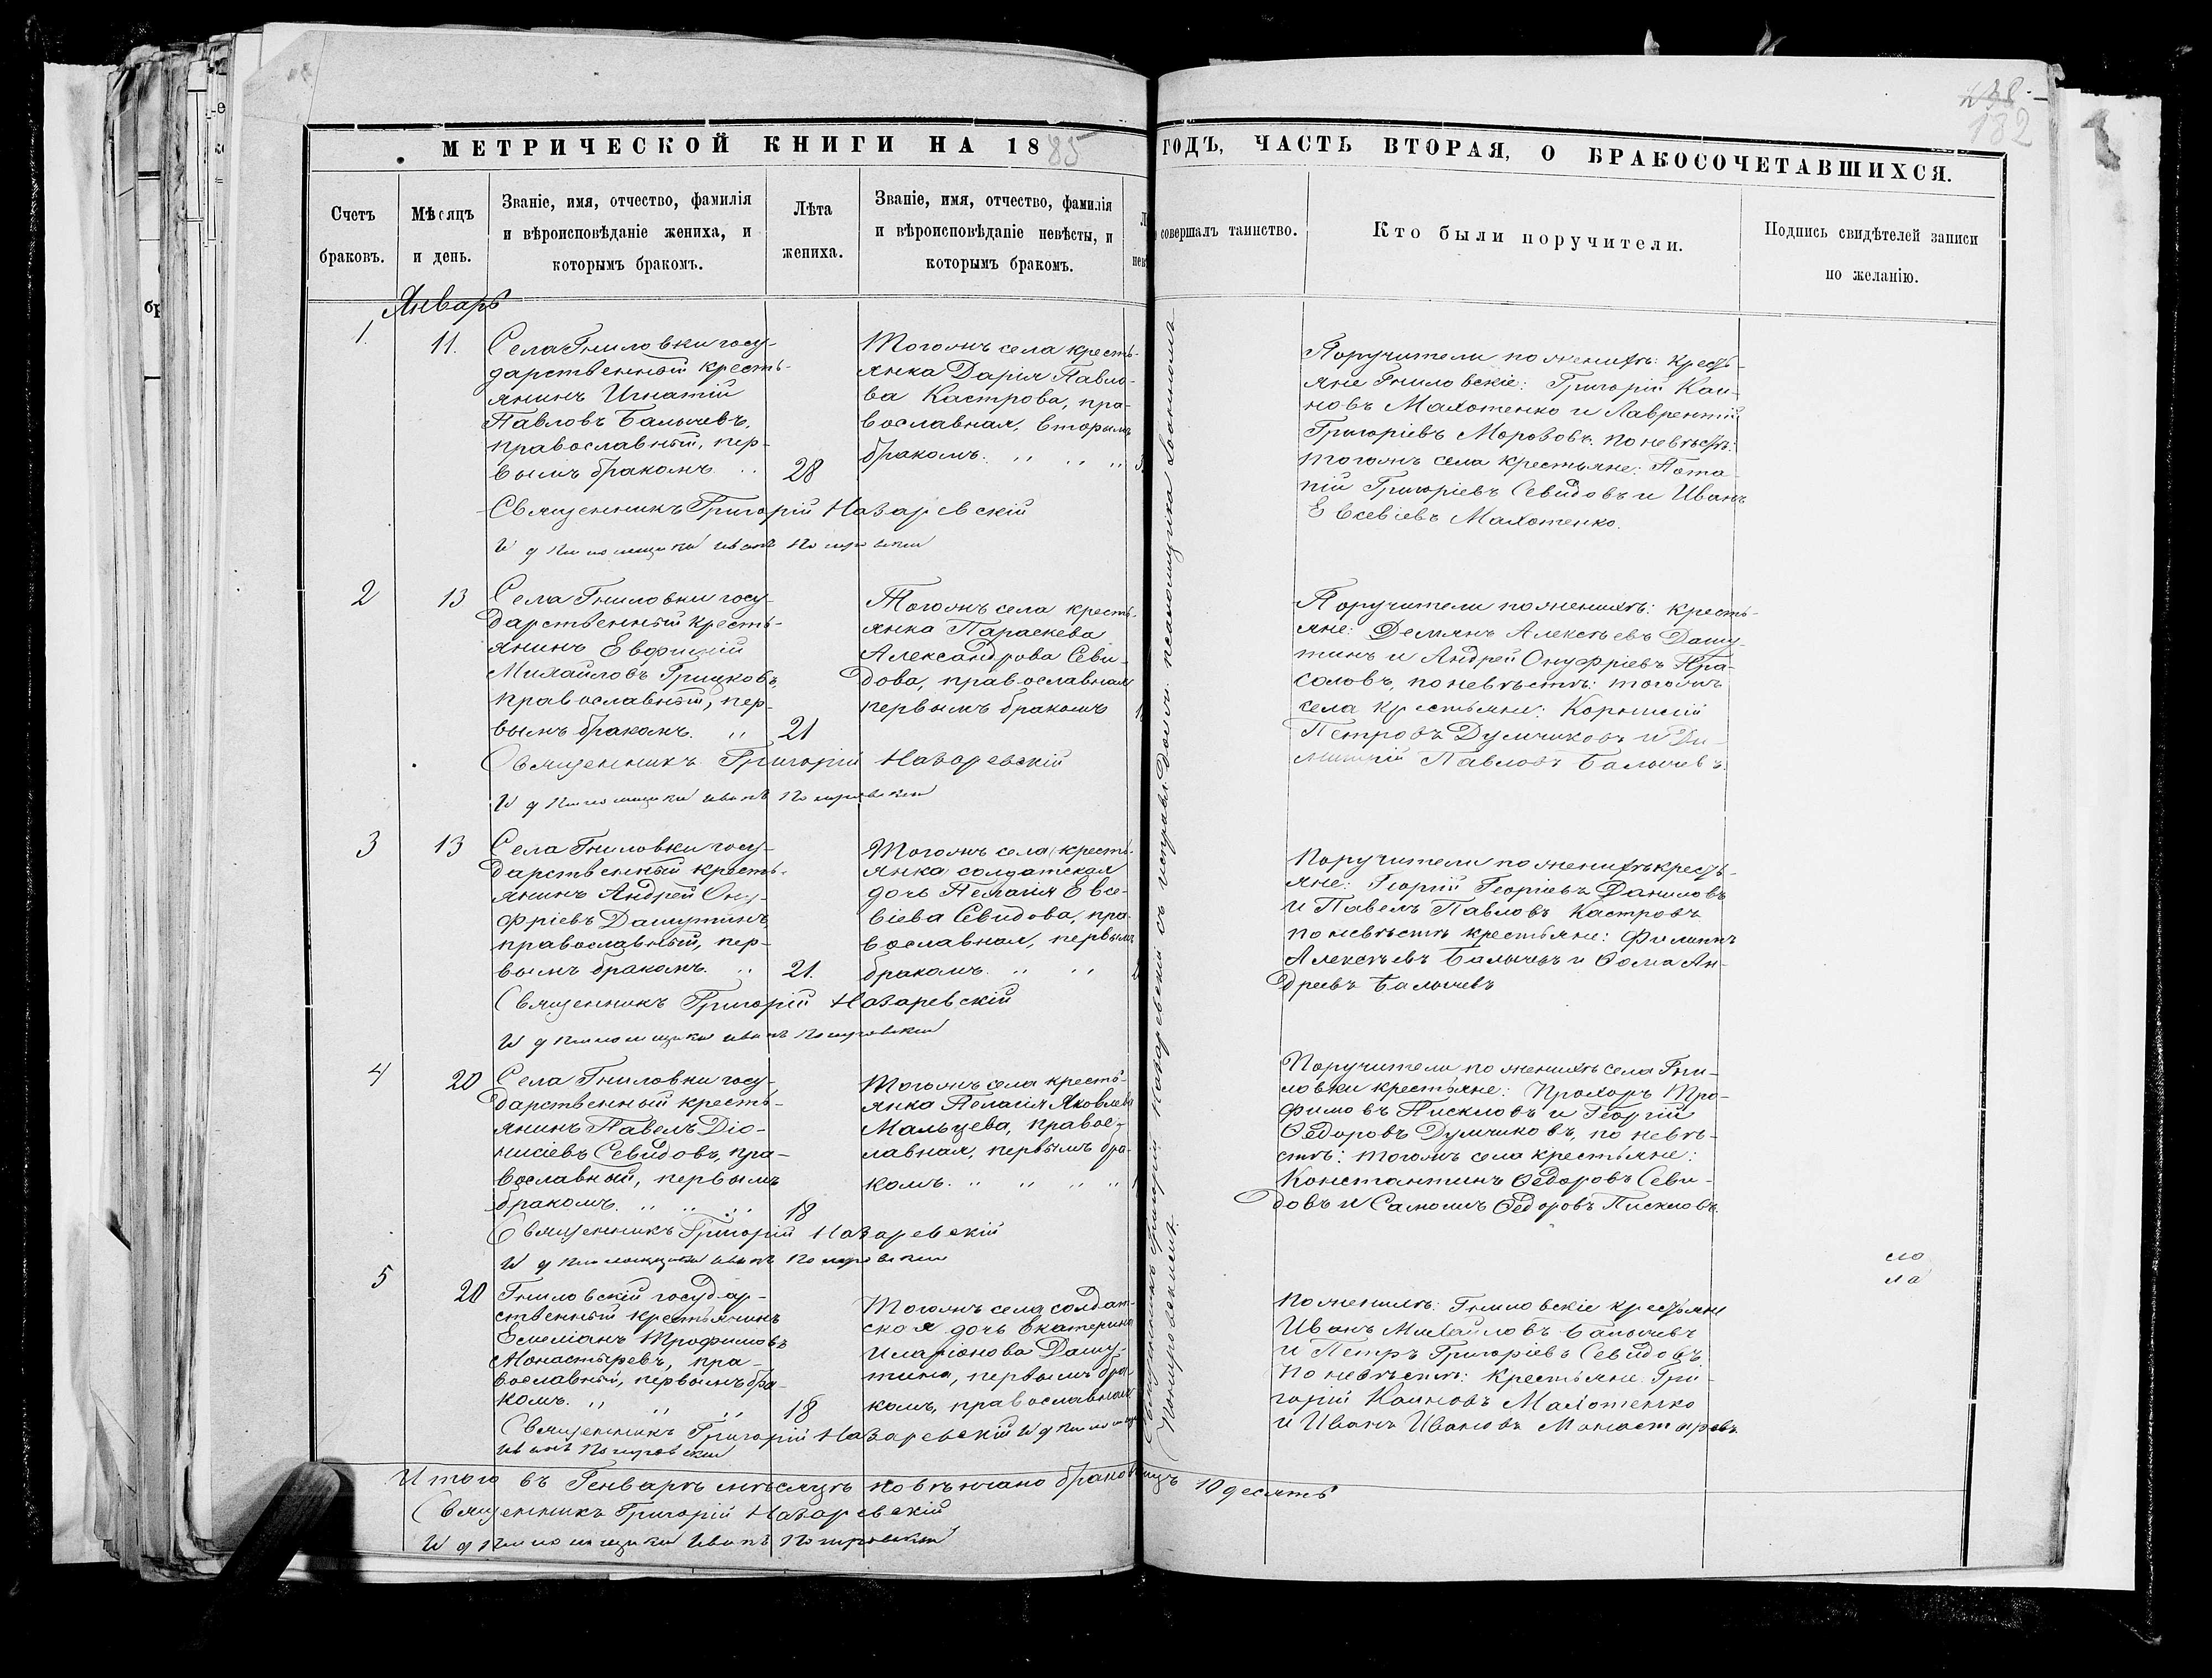 182
МЕТРИЧЕСКОЙ КНИГИ НА 1885
ГОДЪ, ЧАСТЬ ВТОРАЯ, О БРАКОСОЧЕТАВШИХСЯ.
Счетъ
браковъ.
Мѣсяцъ
и день.
Званіе, имя, отчество, фамилія
и вѣроисповѣданіе жениха, и
которымъ бракомъ.
Лѣта
жениха.
Званіе, имя, отчество, фамилія
и вѣроисповѣданіе невѣсты, и
которымъ бракомъ.
совершалъ таинство.
Кто были поручители.
Подпись свидѣтелей записи
по желанію.
Январь
1.
11.
Села Гниловки госу-
дарственный кресть-
янинъ Игнатій
Павловъ Балычевъ,
православный, пер-
вымъ бракомъ.
28
Тогожъ села кресть-
янка Дарія Павло-
ва Кастрова, пра-
вославная, вторымъ
бракомъ.
Поручители по женихѣ: кресть-
яне Гниловскіе: Григорій
Махотенко и Лаврентій
Григоріевъ Морозовъ. по невѣстѣ:
тогожъ села крестьяне: Пота-
пій Григоріевъ Севидовъ и Иванъ
Евсевіевъ Махотенко.
Священникъ Григорій Назаревскій
2
13
Села Гниловки госу-
дарственный кресть-
янинъ
Михайловъ Грицковъ,
православный, пер-
вымъ бракомъ.
21
Тогожъ села кресть-
янка Параскева
Александрова Севи-
дова, православная
первымъ бракомъ
Поручители по женихѣ: кресть-
яне: Деміянъ Алексѣевъ Дашу-
тинъ и Андрей Онуфріевъ Пра-
соловъ, по невѣстѣ: тогожъ
села крестьяне: Корнилій
Петровъ Думчиковъ и Ди-
митрій Павловъ Балычевъ.
Священникъ Григорій Назаревскій
3
13
Села Гниловки госу-
дарственный кресть-
янинъ Андрей Ону-
фріевъ Дашутинъ,
православный, пер-
вымъ бракомъ.
21.
Тогожъ села кресть-
янка солдатская
дочь Пелагія Евсе-
віева Севидова, пра-
вославная, первымъ
бракомъ.
Поручители по женихѣ кресть-
яне: Георгій Георгіевъ Даниловъ
и Павелъ Павловъ Кастровъ
по невѣстѣ крестьяне: Филиппъ
Алексѣевъ Балычевъ и Ѳома Ан-
дреевъ Балычевъ
Священникъ Григорій Назаревскій
4
20
Села Гниловки госу-
дарственный кресть-
янинъ Павелъ Діо-
нисіевъ Севидовъ, пра-
вославный, первымъ
бракомъ.
18
Тогожъ села кресть-
янка Пелагія Яковлева
Мальцева, правос-
лавная, первымъ бра-
комъ.
Поручители по женихѣ села Гни-
ловки крестьяне: Прохоръ Тро-
фимовъ Пискловъ и Георгій
Ѳедоровъ Думчиковъ, по невѣ-
стѣ: тогожъ села крестьяне:
Константинъ Ѳедоровъ Севи-
довъ и Ѳедоровъ Пискловъ.
Священникъ Григорій Назаревскій
5
20
Гниловскій государ-
ственный крестьянинъ
Емеліанъ Трофимовъ
Монастыревъ, пра-
вославный, первымъ бра-
комъ.
18
Тогожъ села солдат-
ская дочь Екатерина
Иларіонова Дашу-
тина, первымъ бра-
комъ, православная
По женихѣ: Гниловскіе крестьяне
Иванъ Михайловъ Балычевъ
и Петръ Григоріевъ Севидовъ.
По невѣстѣ: крестьяне Гри-
горій Махотенко
и Иванъ Ивановъ Монастыревъ.
Священникъ Григорій Назаревскій
Итого въ Генварѣ мѣсяцѣ повѣнчано браковъ
10 десять
Священникъ Григорій Назаревскій